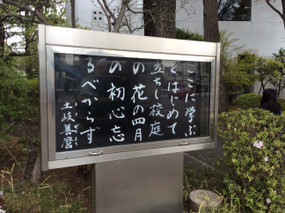 ここに学ぶ
とはじめて
立ちし校庭
の花の四月
の初心忘
るべからず
土岐善麿